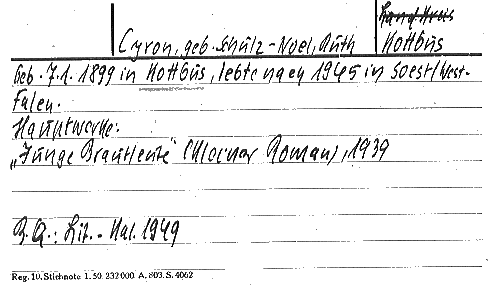 Landkreis
Cyron, geb. Schulz-Noel, Ruth Kottbus
Geb. 7.1. 1899 in Kottbus, lebte gegen 1945 in Soest/West-
falen.
Hauptwerke:
„Junge Brautleute" (Kleiner Roman), 1939
B.Q.: Lit.-Kal. 1949
Reg. 10. Stichnote 1. 50. 232000. A. 803. S. 4062